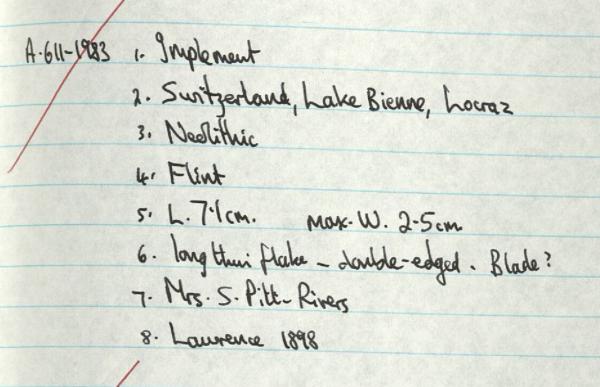 A·611-1983 1. Implement
2. Switzerland, Lake Bienne, Locraz
3. Neolithic
4. Flint
5. L. 7·1cm. max. W. 2·5cm
6. long thin flake – double-edged. Blade?
7. Mrs. S. Pitt-Rivers
8. Lawrence 1898